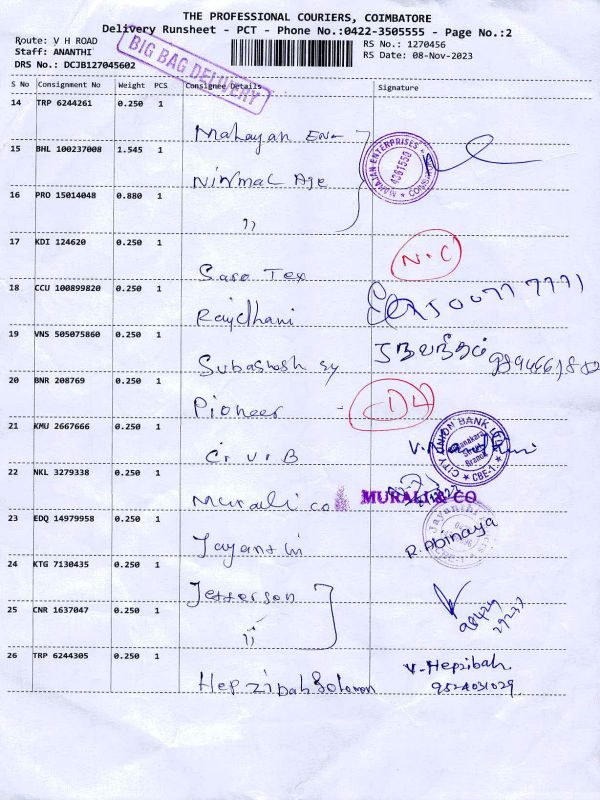 THE PROFESSIONAL COURIERS, COIMBATORE
Delivery Runsheet - PCT - Phone No.:0422-3505555 - Page No.:2
Route: V H ROAD
Staff: ANANTHI
DRS No.: DCJB127045602
RS No.: 1270456
RS Date: 08-Nov-2023
BIG BAG DELIVERY
S No Consignment No Weight PCS Consignee Details Signature
14 TRP 6244261 0.250 1
Mahayan En
15 BHL 100237008 1.545 1
Nirmal Age
MAHAJAN ENTERPRISES
16 PRO 15014048 0.880 1
"
17 KDI 124620 0.250 1
Saro Tex
N.C
18 CCU 100899820 0.250 1
Rajdhani
19 VNS 505075860 0.250 1
Subashsh sy
20 BNR 208769 0.250 1
Pioneer -
21 KMU 2667666 0.250 1
C.U.B
CITY UNION BANK LTD
CBE-1
22 NKL 3279338 0.250 1
Murali co
MURALI & CO
23 EDQ 14979958 0.250 1
Jayanthi
Jayanthi
R. Abinaya
24 KTG 7130435 0.250 1
Jefferson
25 CNR 1637047 0.250 1
"
26 TRP 6244305 0.250 1
Hepzibah Solomon
V. Hepzibah
9524031029